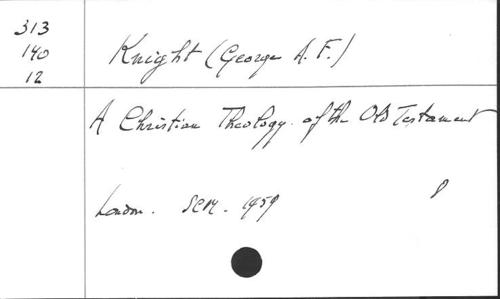 313
140
12
Knight (George A. F.)
A Christian Theology of the Old Testament
London. SCM. 1959
8